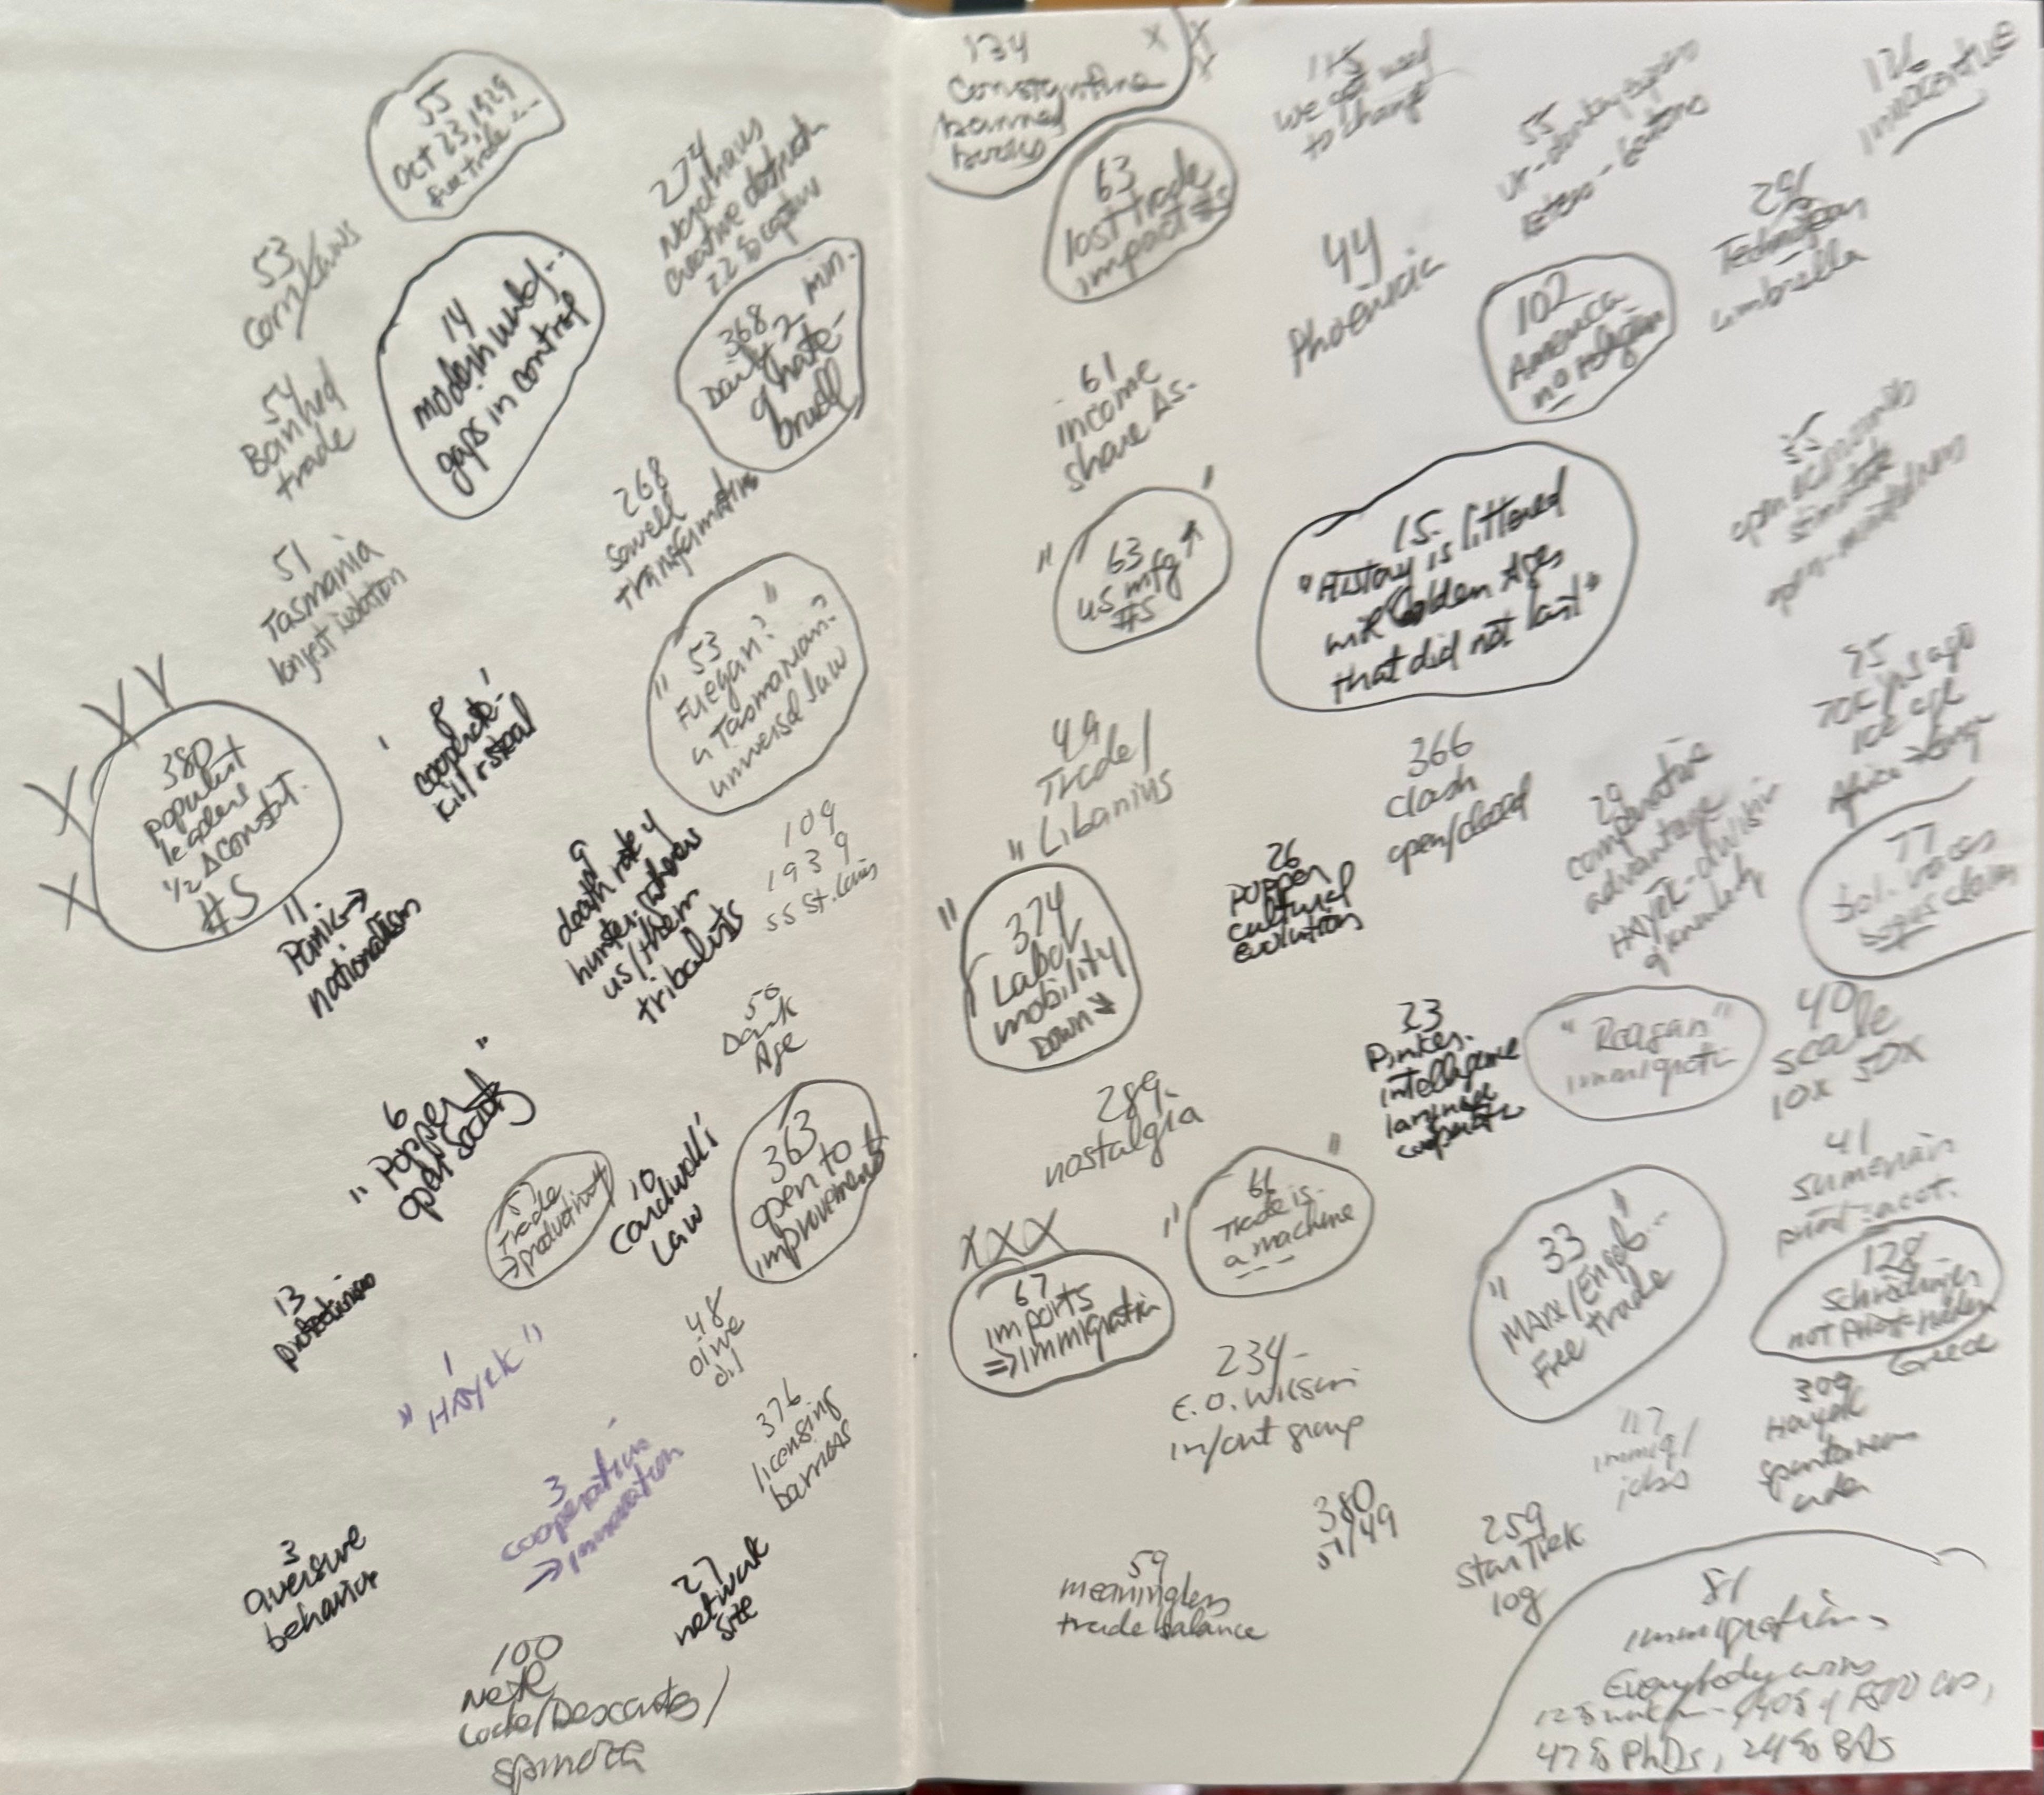 55
Oct 23, 1929
free trade
274
Nordhaus
creative destruct
2.2% capture
53
Corn/Laws
14
gaps in control
368
Daily 2 min.
of hate-
54
Banned
trade
268
Sowell
51
Tasmania
longest isolation
" 53
Fuegan? "
a Tasmanian?
universal law
380
populist
leaders
1/2 Δ constit.
#S
8
cooperate-
kill/steal
11.
Panic→
nationalism
9
death rate
hunter
us/them
tribalists
109
1939
SS St. Louis
50
Dark
Age
6
" Popper
open society "
57
Trade
→productivity
10
Cardwell's
Law
363
open to
improvement
13
protectionism
1
" HAYEK "
48
olive
oil
3
cooperation
→innovation
376
licensing
barriers
3
aversive
behavior
27
network
size
100
Neth
Locke/Descartes/
Spinoza
134
Constantine
banned
books
X X X
115
to change
55
126
Innocentive
63
lost trade
impact #s
44
Phoenicia
291
umbrella
102
America
no religion
61
income
share
35
open economies
stimulate
open-mindedness
" 63
US mfg ↑ "
#S
15.
"History is littered
with Golden Ages
that did not last"
75
70K yrs ago
ice age
49
Trade/
" Libanius
366
clash
open/closed
29
comparative
advantage
HAYEK-division
of knowledge
77
bogus claim
26
Popper
cultural
evolution
" 374
Labor
mobility
DOWN
23
Pinker.
intelligence
language
cooperation
" Reagan"
immigrati
40
scale
10x 50x
289.
nostalgia
41
Sumerian
" 66
Trade is
a machine "
XXX
67
imports
⇒immigration
" 33
MARX/Engels... "
Free trade
128
Schrödinger
Greece
234-
E.O. Wilson
in/out group
117
immig/
jobs
309
Hayek
spontaneous
order
380
51/49
259
Star Trek
log
59
meaningless
trade balance
81
immigration
Everybody wins
47% PhDs, 24% BAs